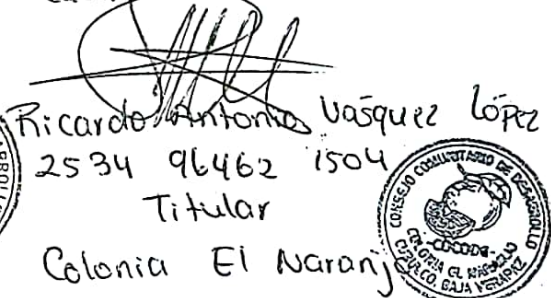 Ricardo Antonio Vasquez López
2534 96462 1504
Titular
Colonia El Naranj
CONSEJO COMUNITARIO DE DESARROLLO
-COCODE-
COLONIA EL NARANJO
CUBULCO, BAJA VERAPAZ